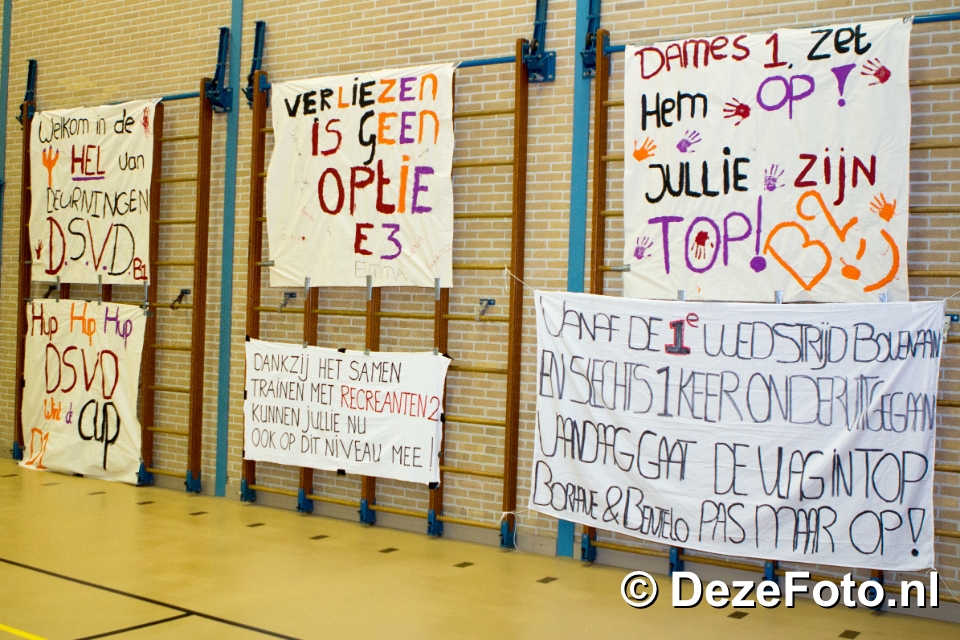 Welkom in de
HEL van
DEURNINGEN
D.S.V.D. B1
Hup Hup Hup
DSVD
Wint de
CUP
D1
VERLIEZEN
IS GEEN
OPTIE
E3
EMMA
DANKZIJ HET SAMEN
TRAINEN MET RECREANTEN 2
KUNNEN JULLIE NU
OOK OP DIT NIVEAU MEE!
DAMES 1, ZET
HEM OP!
JULLIE ZIJN
TOP! B2
VANAF DE 1e WEDSTRIJD BOVENAAN
EN SLECHTS 1 KEER ONDERUITGEGAAN
VANDAAG GAAT DE VLAG IN TOP
BORHAVE & BENTELO PAS MAAR OP!
© DezeFoto.nl